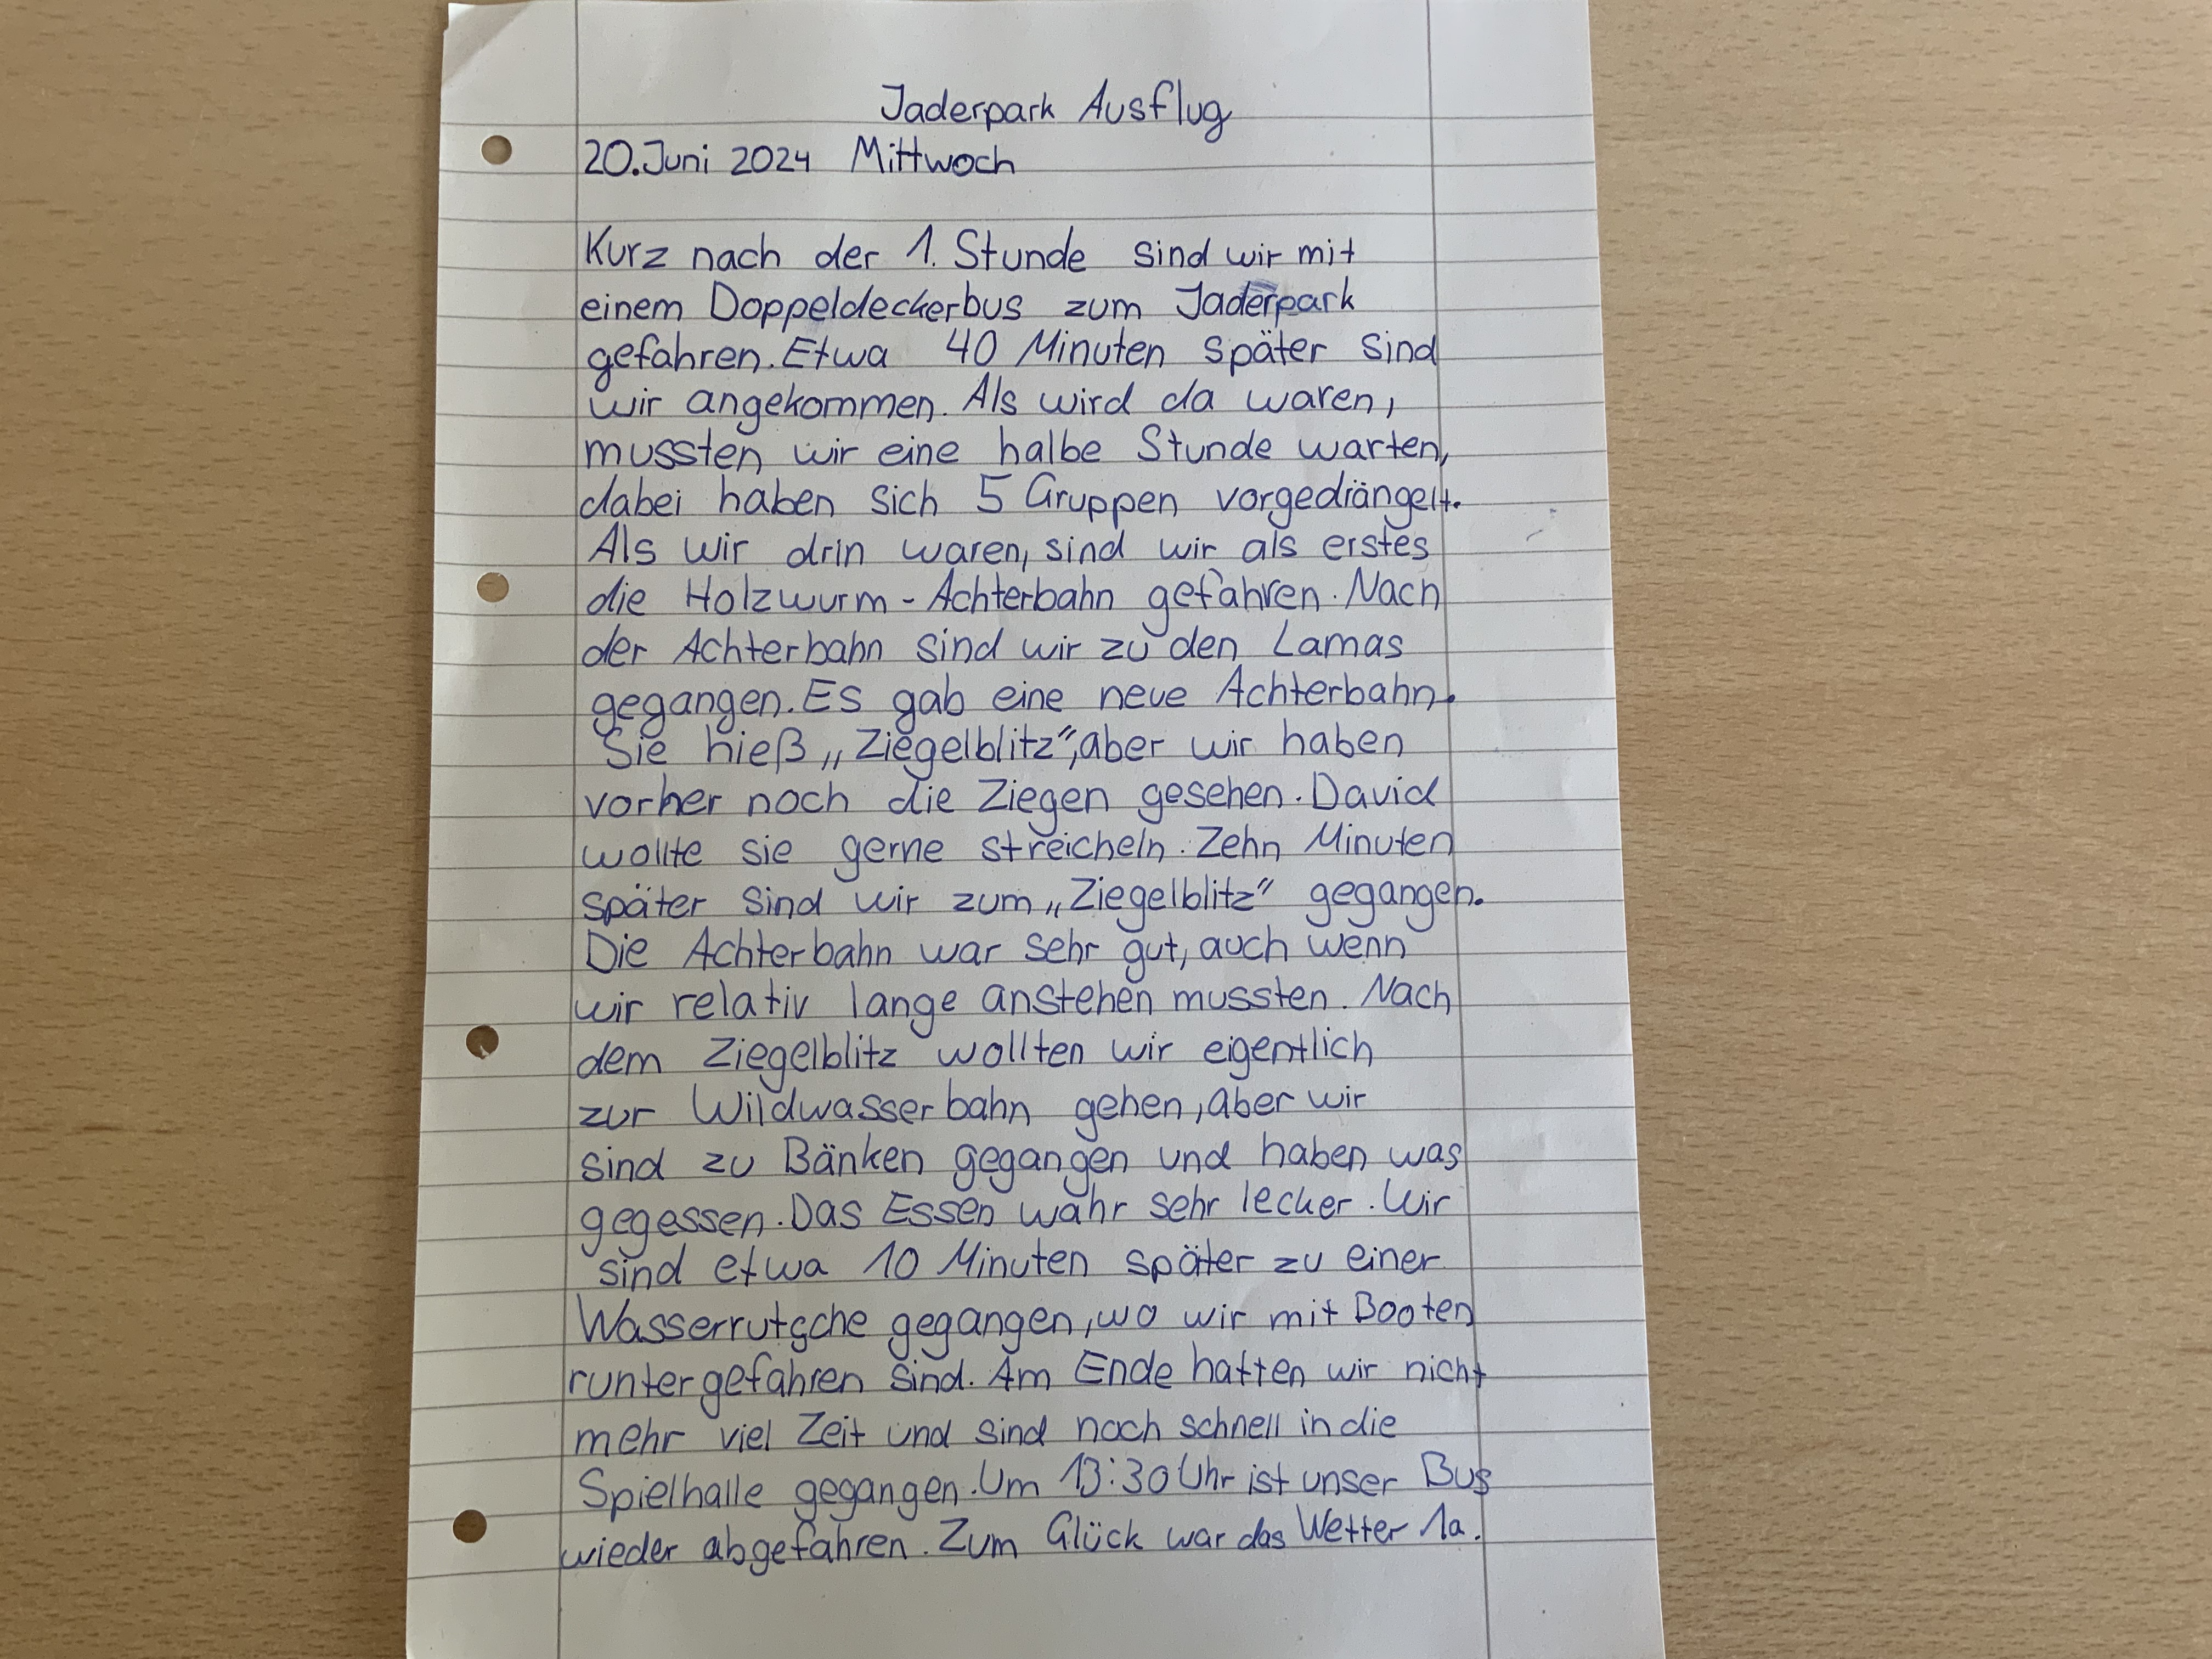 Jaderpark Ausflug
20.Juni 2024 Mittwoch
Kurz nach der 1. Stunde sind wir mit
einem Doppeldeckerbus zum Jaderpark
gefahren. Etwa 40 Minuten später sind
wir angekommen. Als wird da waren,
mussten wir eine halbe Stunde warten,
dabei haben sich 5 Gruppen vorgedrängelt.
Als wir drin waren, sind wir als erstes
die Holzwurm-Achterbahn gefahren. Nach
der Achterbahn sind wir zu den Lamas
gegangen. Es gab eine neue Achterbahn.
Sie hieß „Ziegelblitz", aber wir haben
vorher noch die Ziegen gesehen. David
wollte sie gerne streicheln. Zehn Minuten
später sind wir zum „Ziegelblitz" gegangen.
Die Achterbahn war sehr gut, auch wenn
wir relativ lange anstehen mussten. Nach
dem Ziegelblitz wollten wir eigentlich
zur Wildwasserbahn gehen, aber wir
sind zu Bänken gegangen und haben was
gegessen. Das Essen wahr sehr lecker. Wir
sind etwa 10 Minuten später zu einer
Wasserrutsche gegangen, wo wir mit Booten
runtergefahren sind. Am Ende hatten wir nicht
mehr viel Zeit und sind noch schnell in die
Spielhalle gegangen. Um 13:30 Uhr ist unser Bus
wieder abgefahren. Zum Glück war das Wetter 1a.